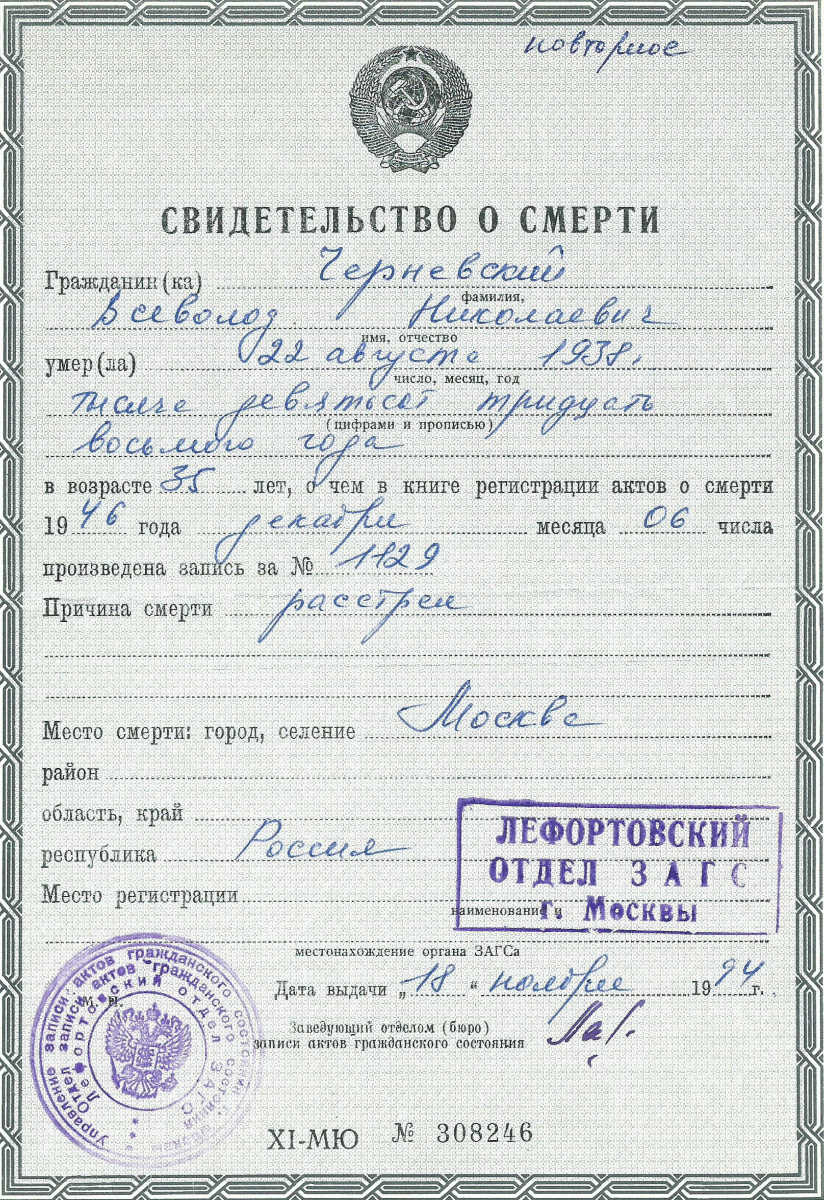 повторное
СВИДЕТЕЛЬСТВО О СМЕРТИ
Гражданин(ка) Черневский
фамилия,
Всеволод Николаевич
имя, отчество
умер(ла) 22 августа 1938г.
число, месяц, год
тысяча девятьсот тридцать
(цифрами и прописью)
восьмого года
в возрасте 35 лет, о чем в книге регистрации актов о смерти
1946 года декабря месяца 06 числа
произведена запись за № 1129
Причина смерти расстрел
Место смерти: город, селение Москва
район
область, край
республика Россия
Место регистрации
ЛЕФОРТОВСКИЙ
ОТДЕЛ ЗАГС
г. Москвы
наименование и
местонахождение органа ЗАГСа
Дата выдачи „18“ ноября 1994 г.
М. П.
Заведующий отделом (бюро)
записи актов гражданского состояния
Управление записи актов гражданского состояния г. Москвы
Отдел записи актов гражданского состояния
Лефортовский отдел ЗАГС
XI-МЮ № 308246